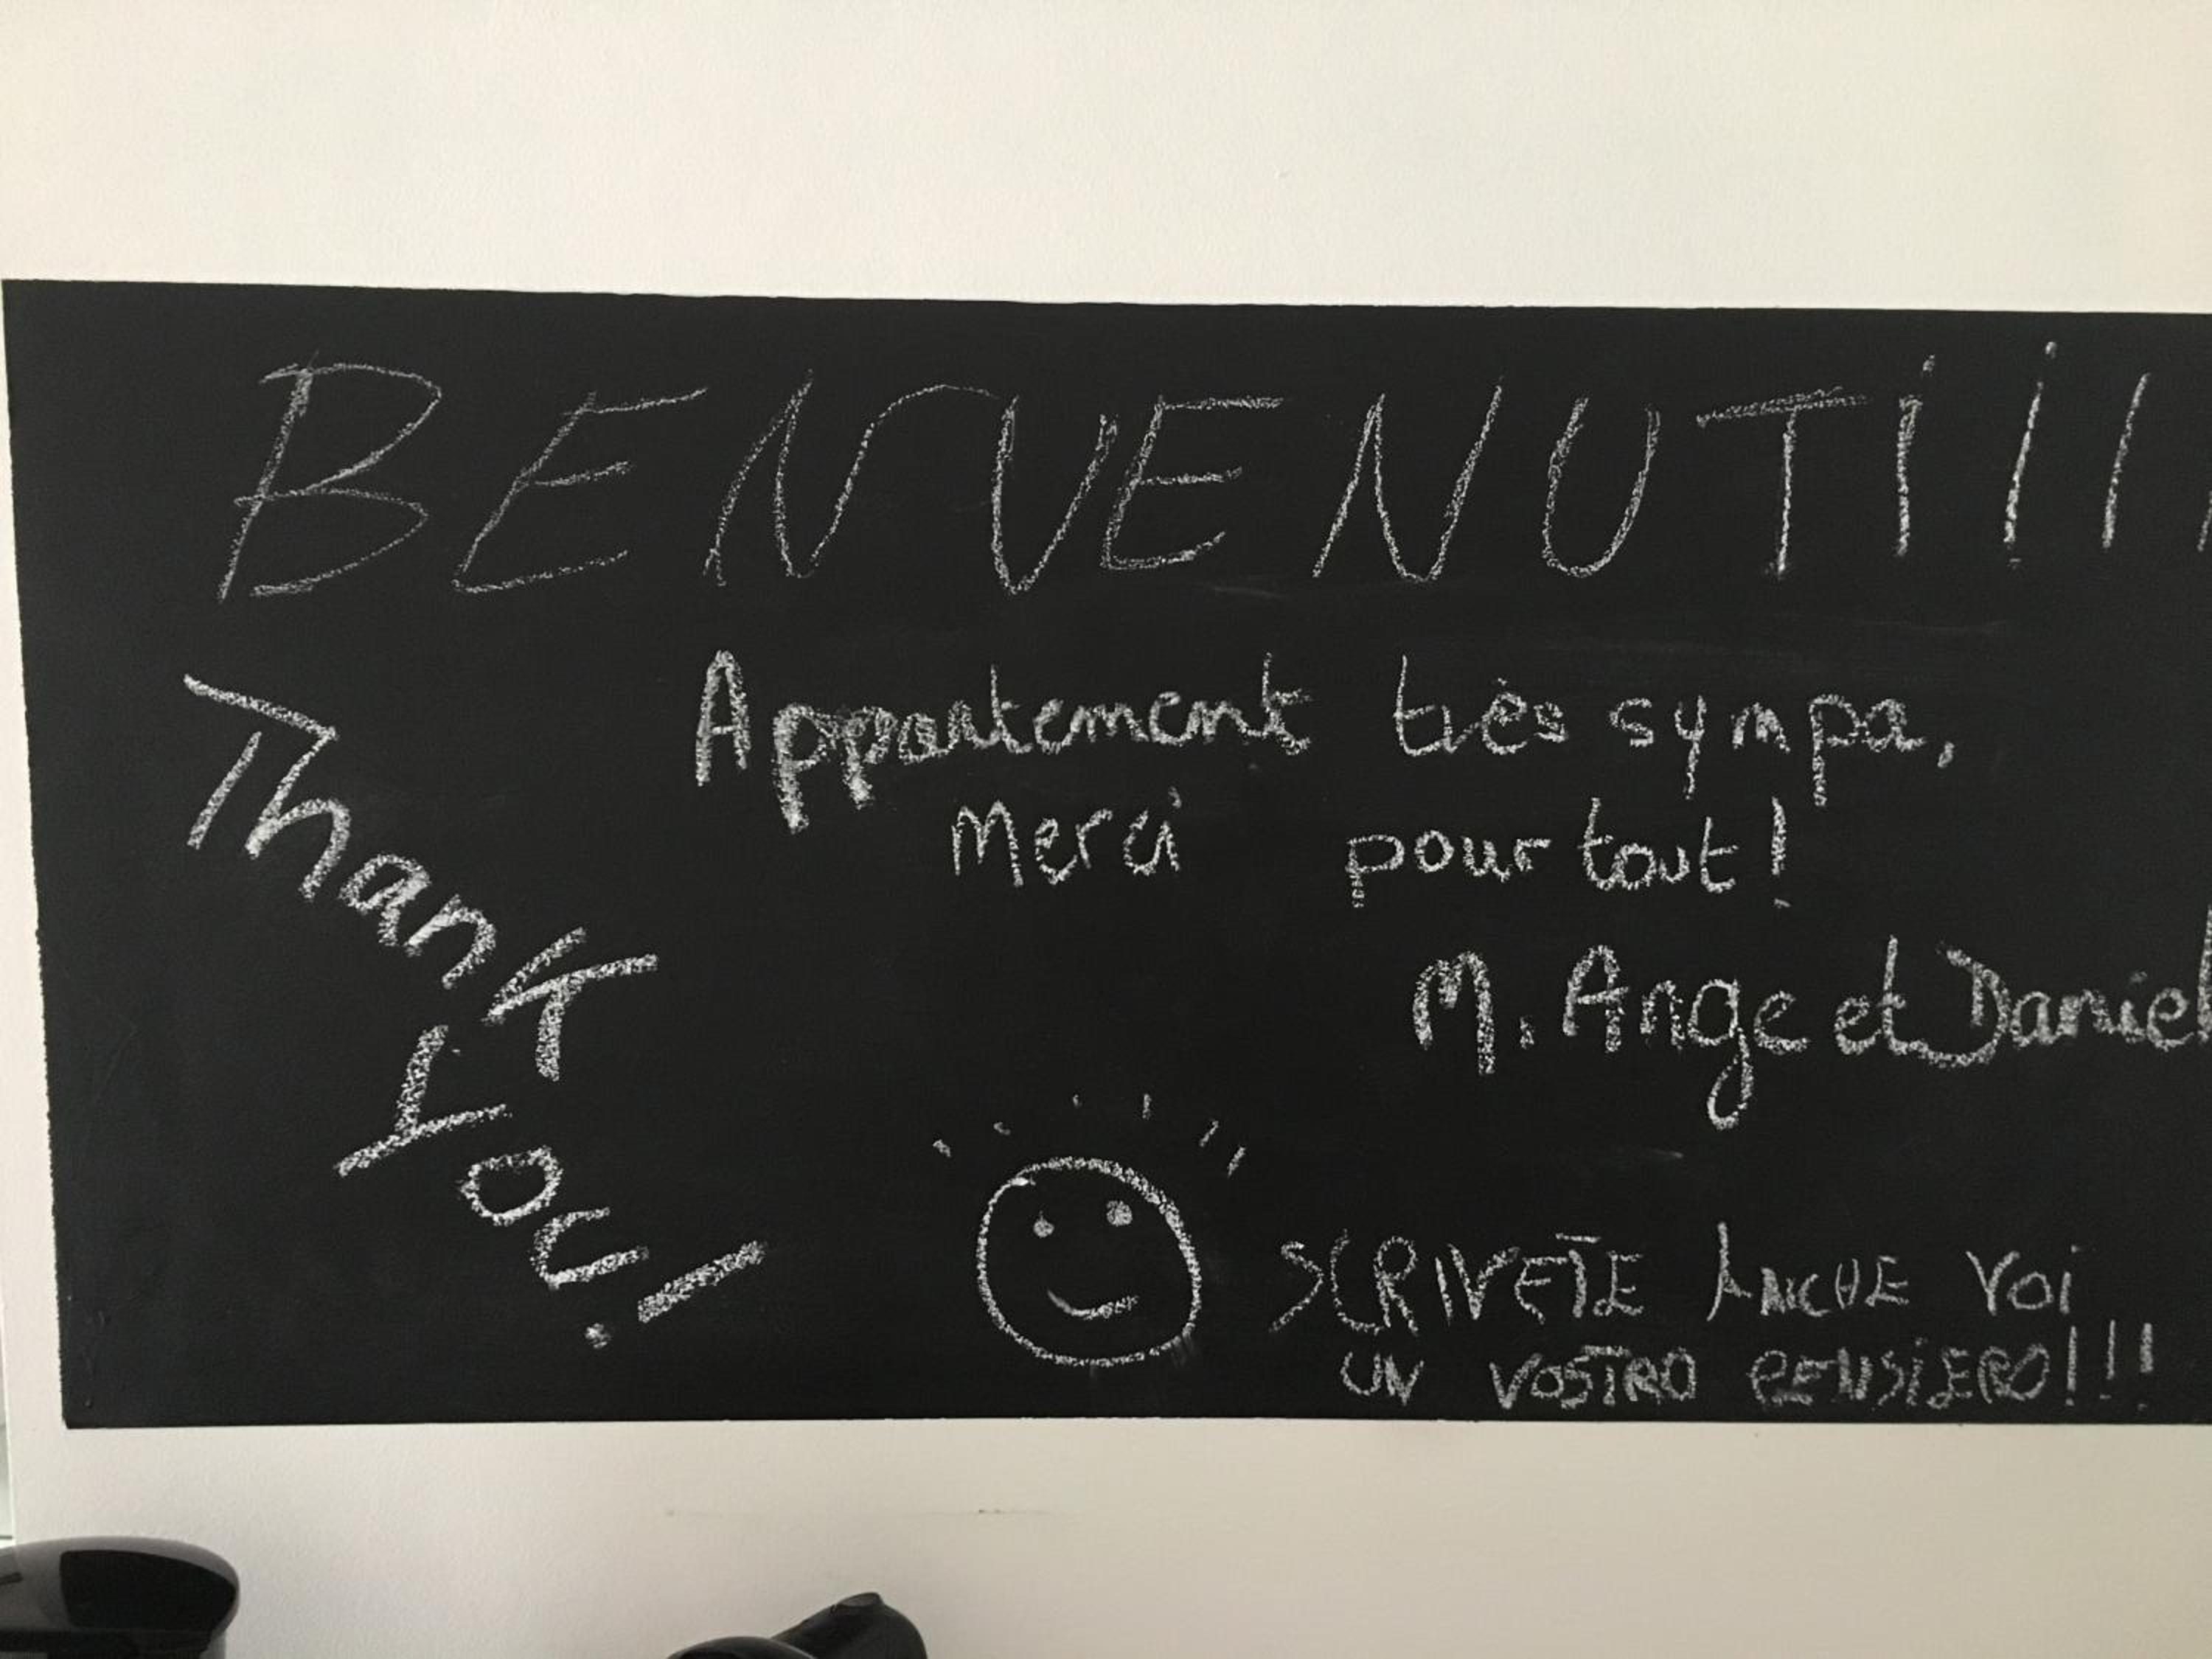 BENVENUTi!!!
Appartement très sympa,
Merci pour tout!
M. Ange et Daniel
Thank
You!
SCRIVETE ANCHE VOi
UN VOSTRO PENSiERO!!!